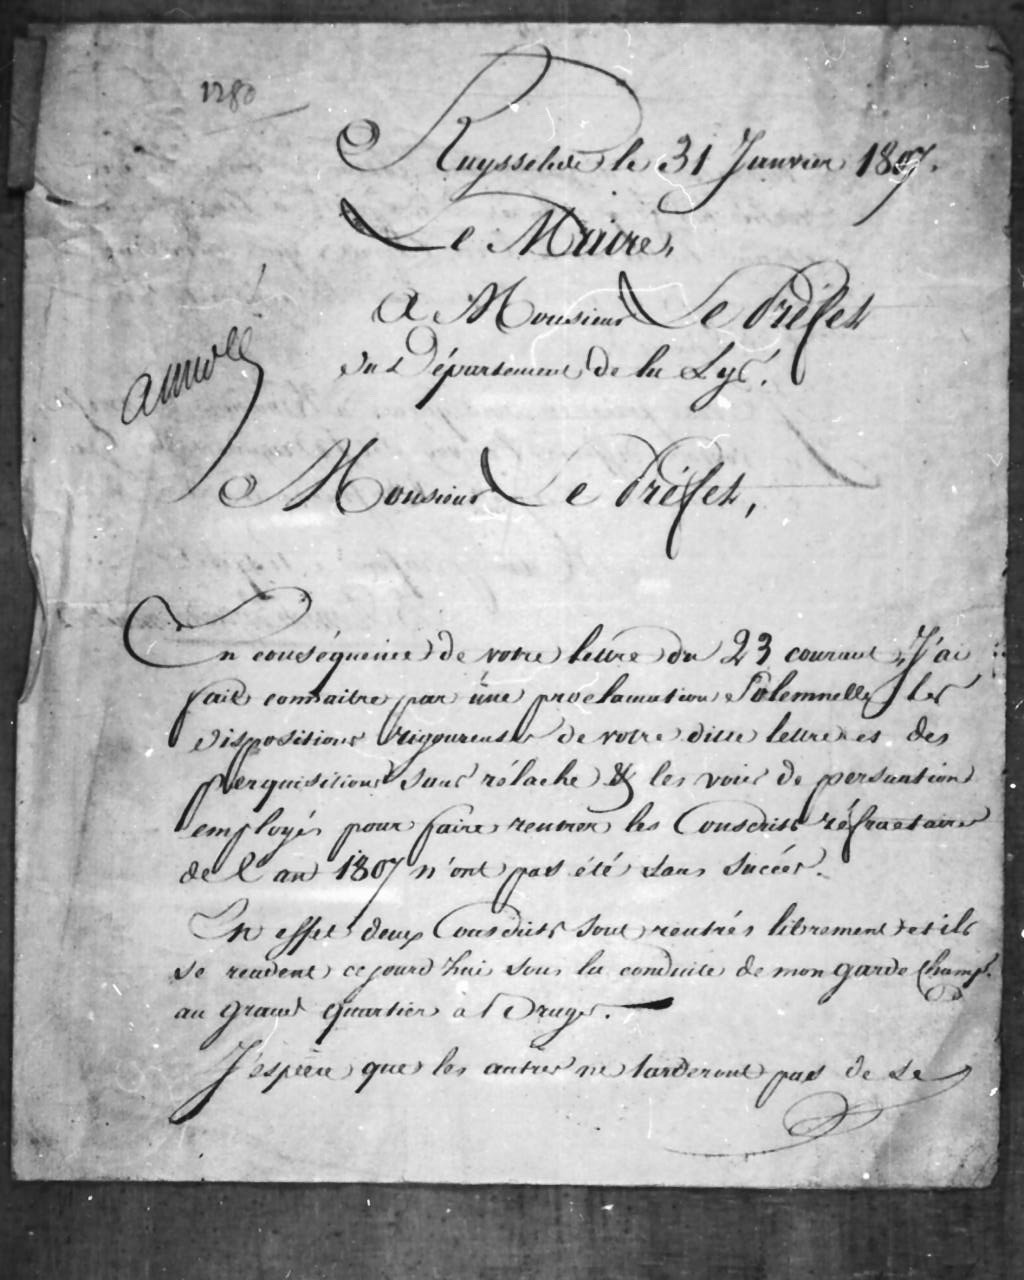 1280
Ruysselede le 31 Janvier 1807.
Le Maire,
A Monsieur Le Préfet
du Département de la Lys.
Monsieur Le Préfet,
En conséquence de votre lettre du 23 courant, J'ai
fait connaitre par une proclamation Solemnelle les
dispositions rigoureuses de votre ditte lettre et des
perquisitions sans rélache & les voies de persuation
employés pour faire rentrer les Conscrits réfractaires
de l'an 1807 n'ont pas été sans succés.
En effet deux Conscrits sont rentrés librement et ils
se rendent cejourd'hui sous la conduite de mon garde Champ.
au grand quartier à Bruges.
J'espère que les autres ne tarderont pas de se